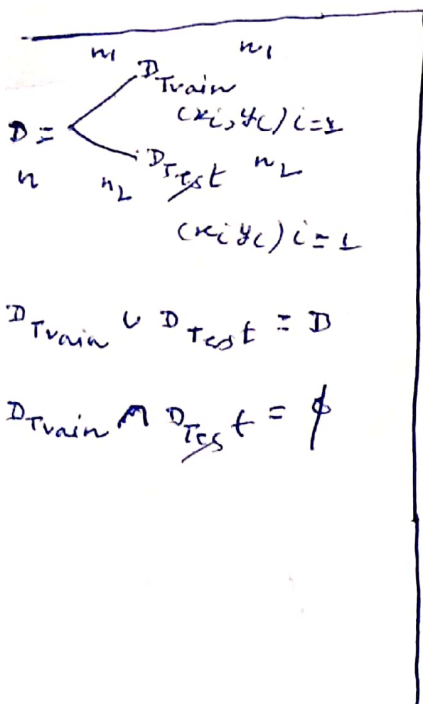 n1 n1
D Train
(xi, yi) i=1
D =
n n2 D Test n2
(xi yi) i=1
D Train ∪ D Test = D
D Train ∩ D Test = ϕ